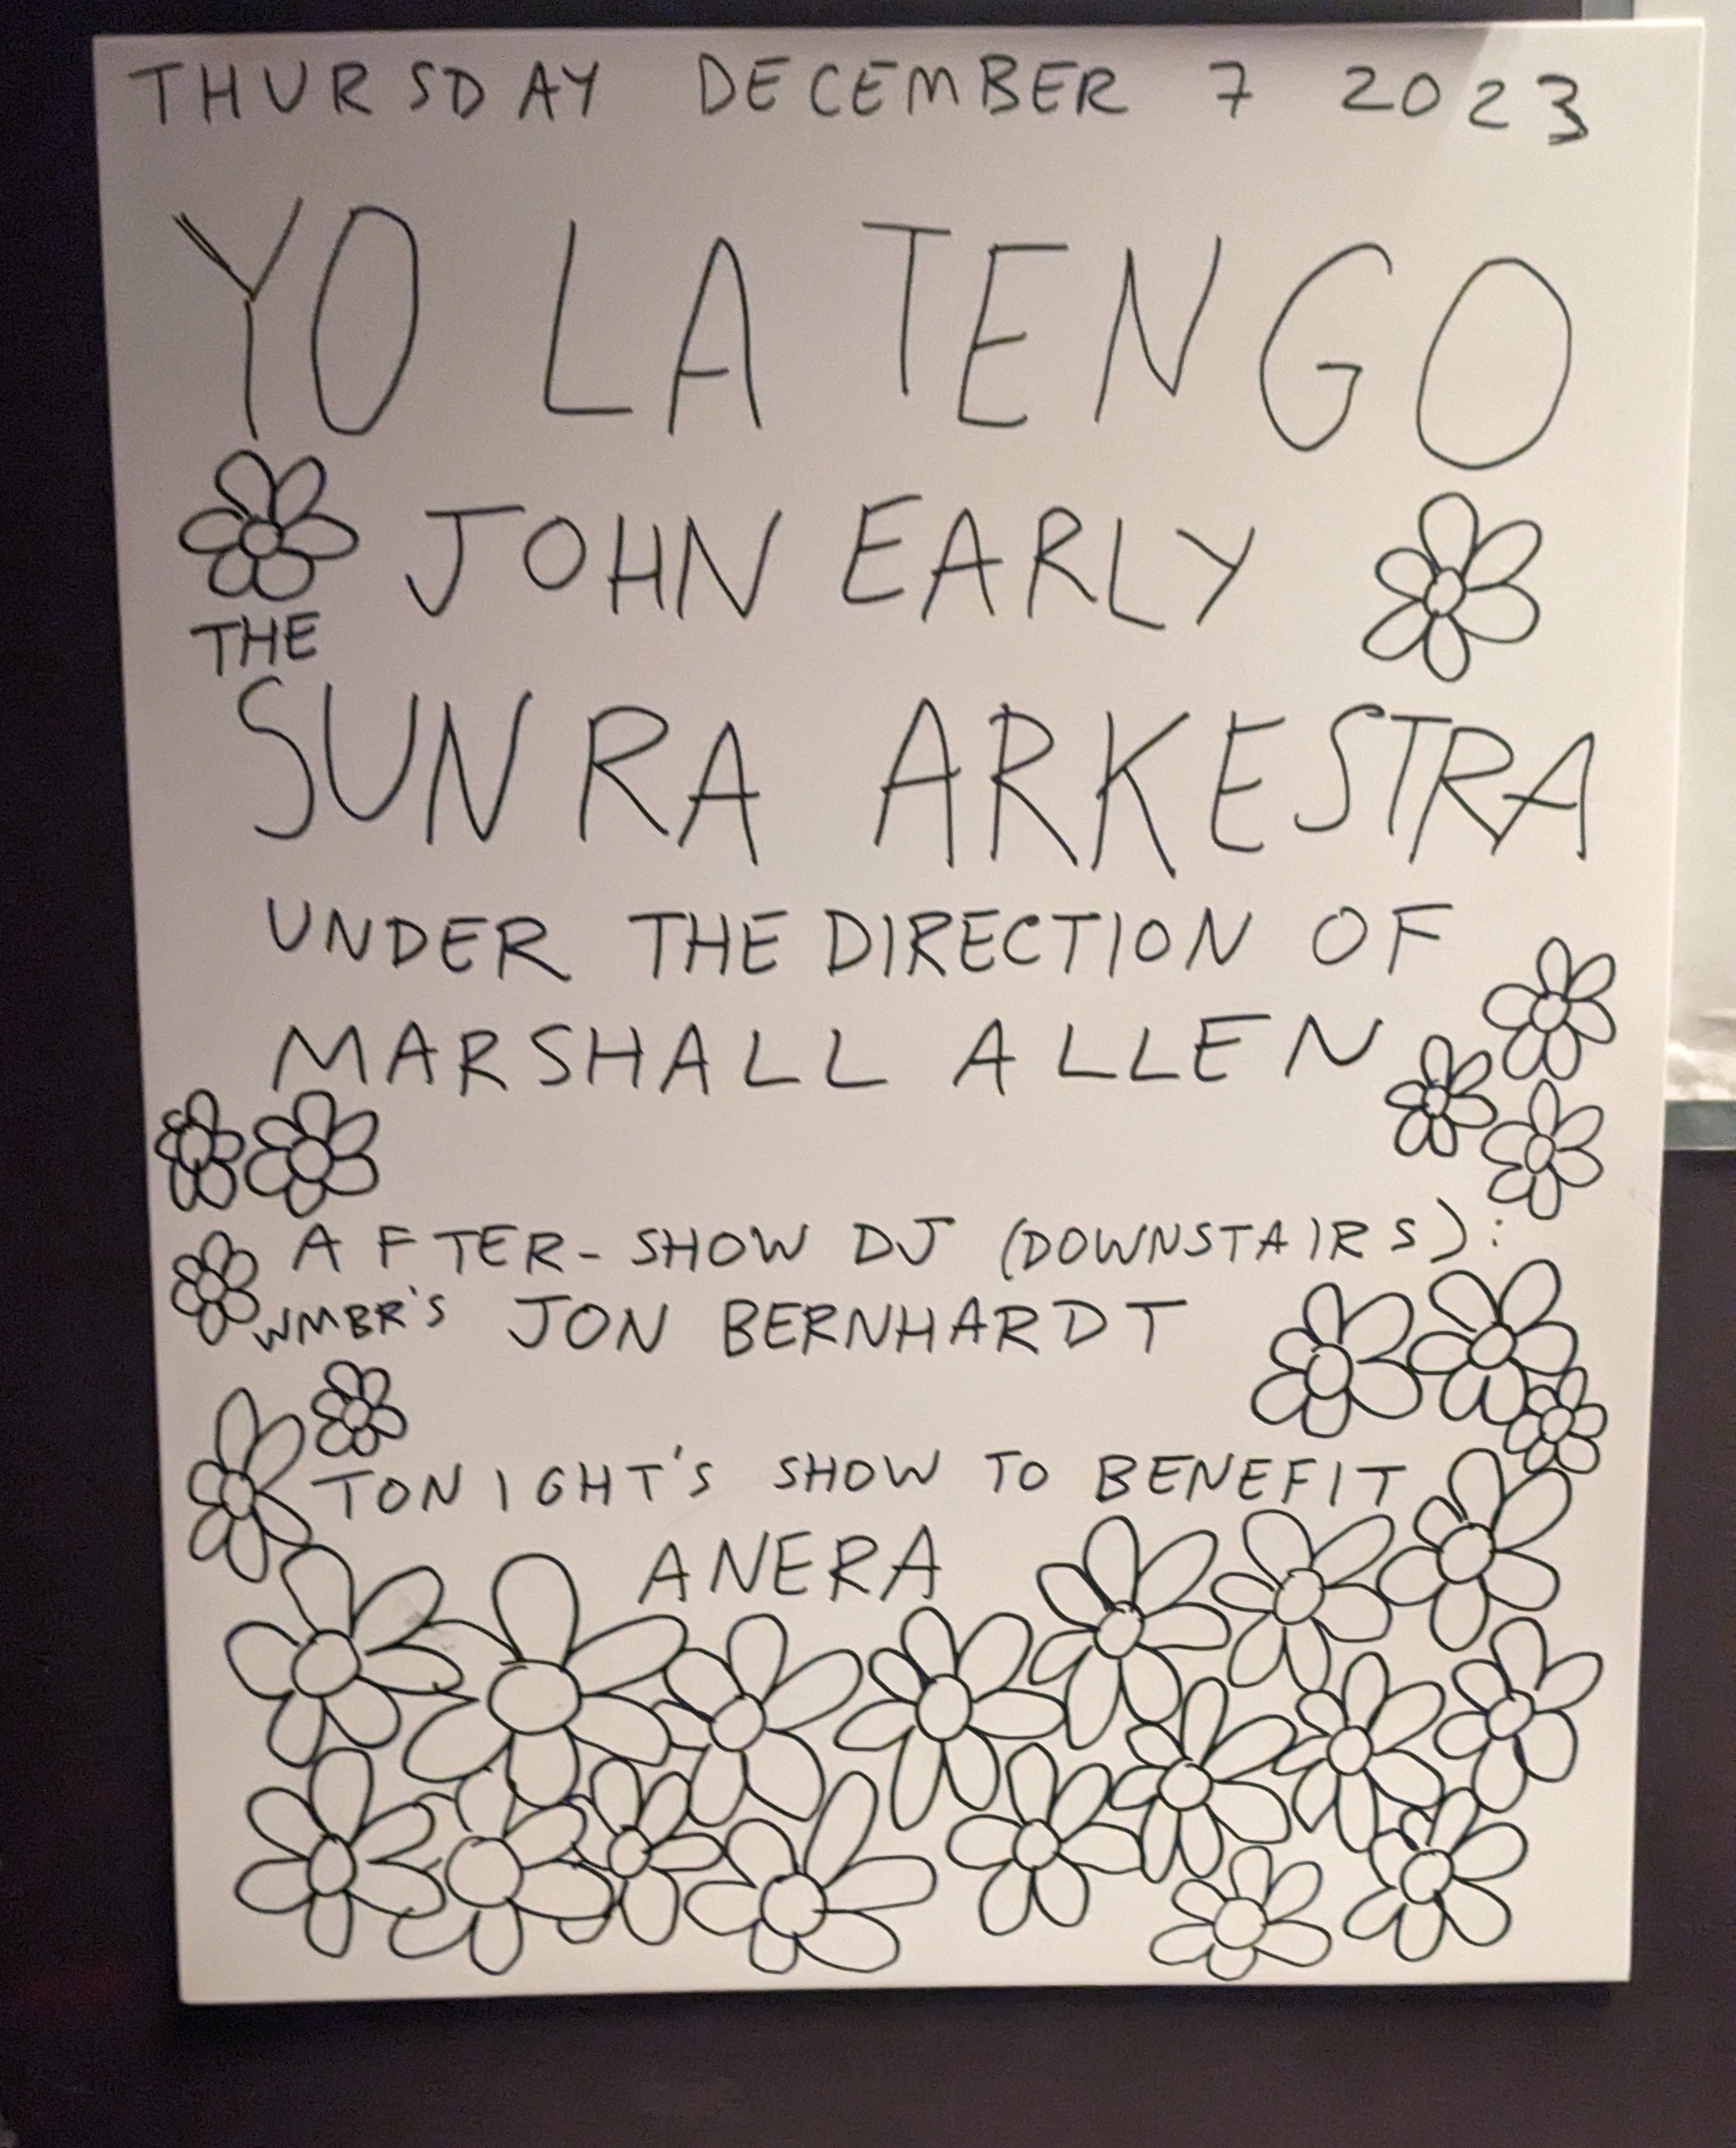 THURSDAY DECEMBER 7 2023
YO LA TENGO
JOHN EARLY
THE
SUN RA ARKESTRA
UNDER THE DIRECTION OF
MARSHALL ALLEN
AFTER-SHOW DJ (DOWNSTAIRS):
WMBR'S JON BERNHARDT
TONIGHT'S SHOW TO BENEFIT
ANERA